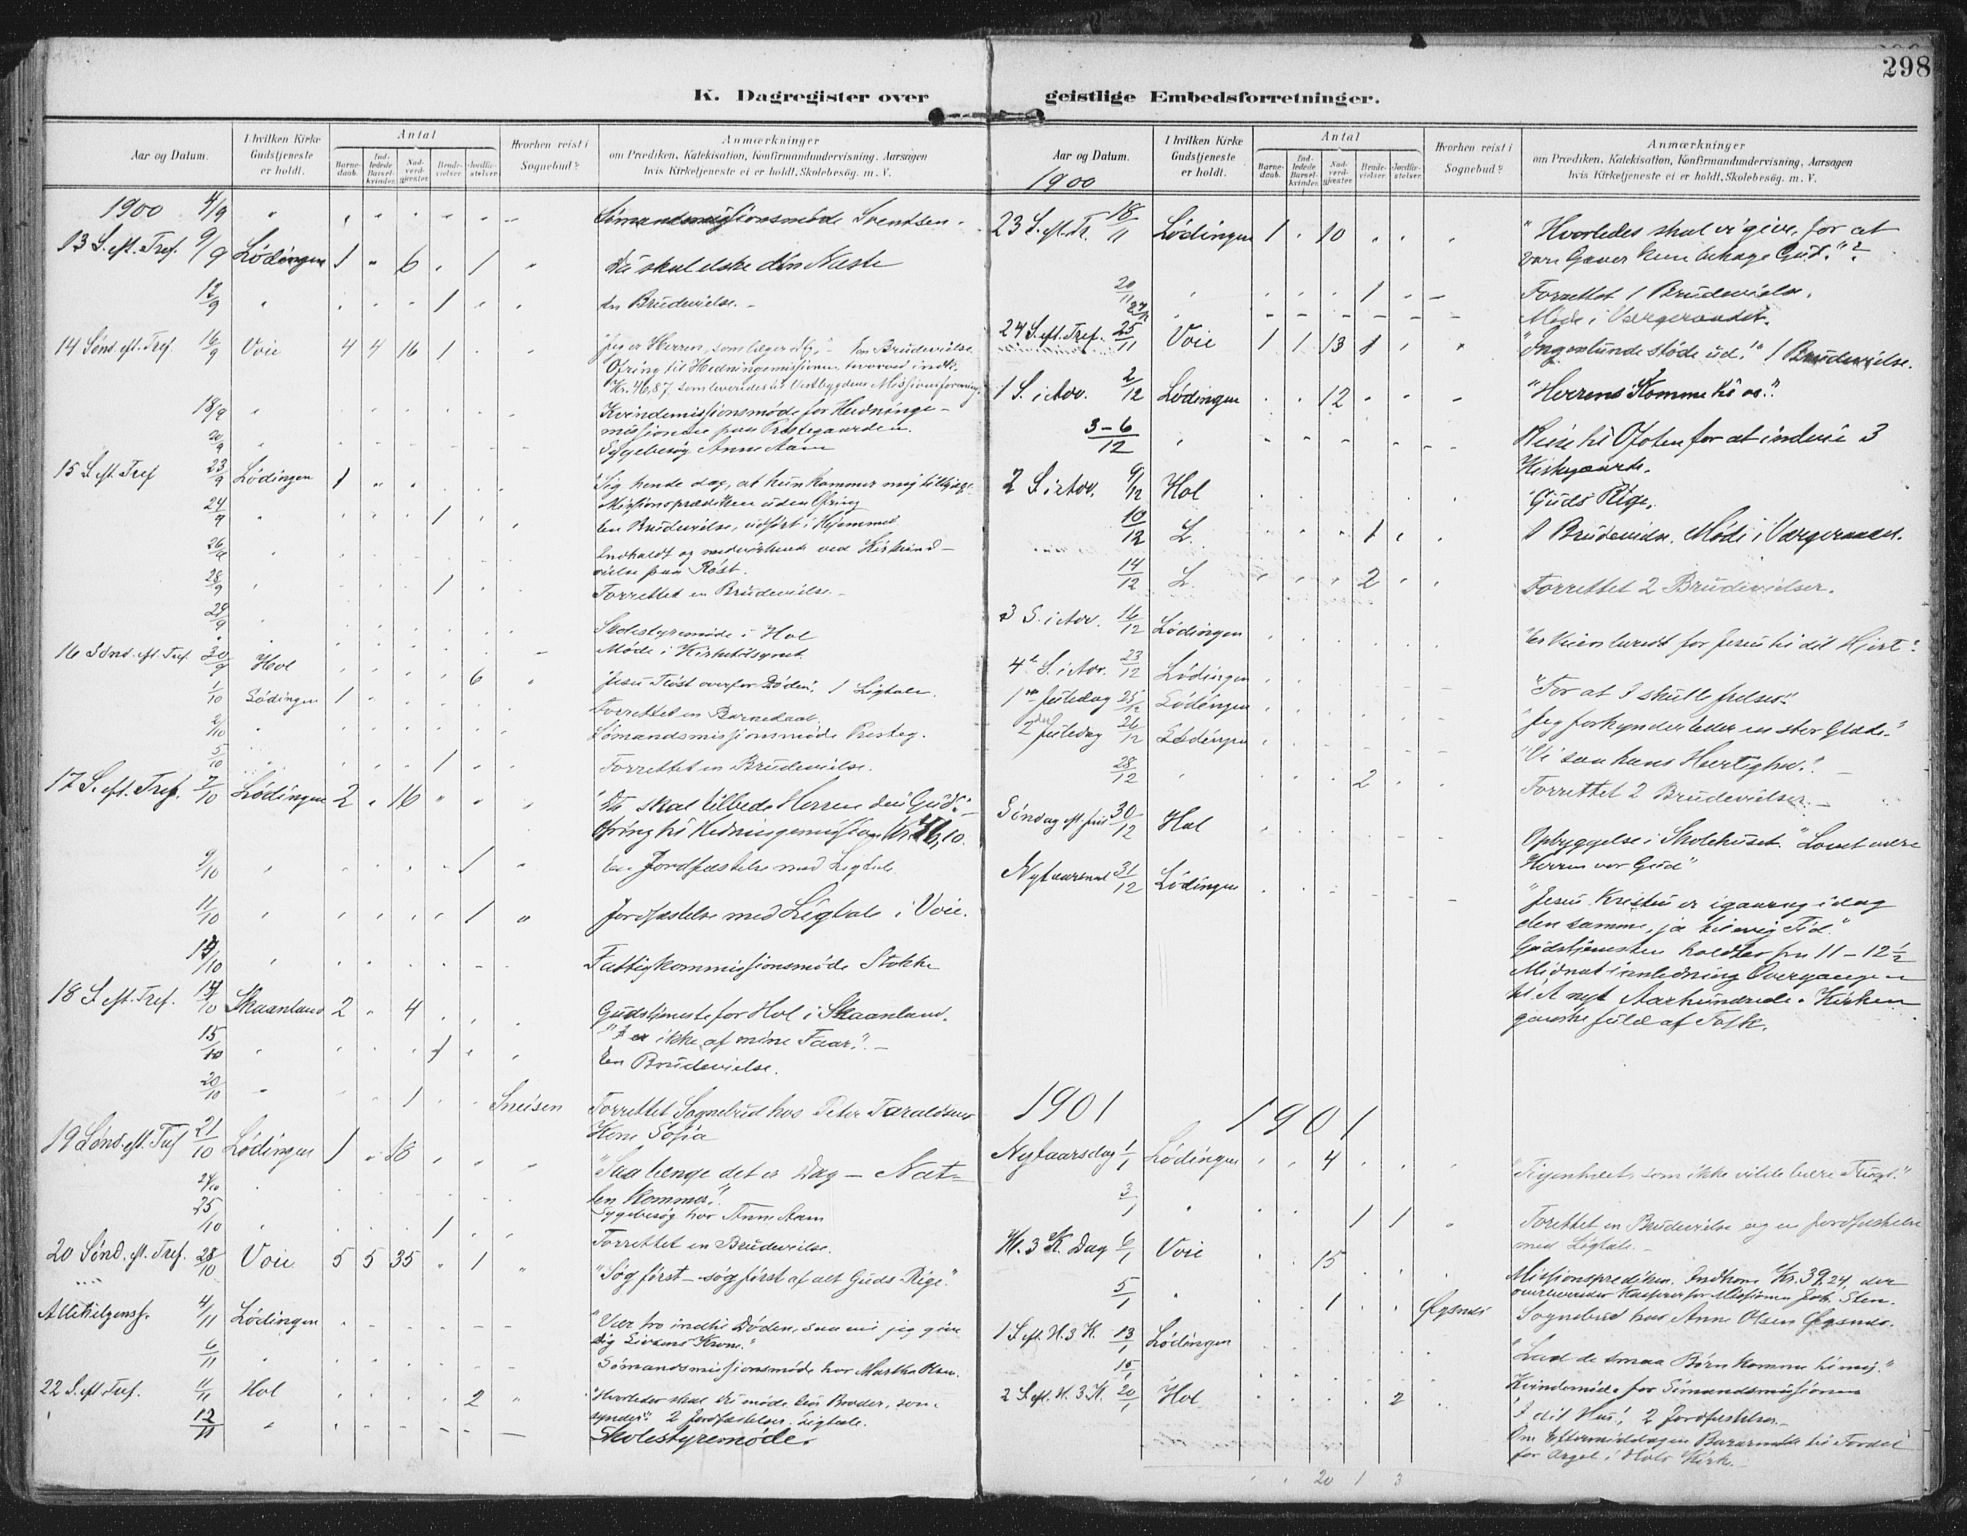 298
K. Dagregister over
Aar og Datum.
I hvilken Kirke Gudstjeneste er holdt.
Antal
Barne-daab.
Ind-ledede Barsel-kvinder.
Nad-verd-gjæster.
Brude-vielser.
Jordfæ-stelser.
Hvorhen reist i Sognebud?
Anmærkninger
om Prædiken, Katekisation, Konfirmandundervisning, Aarsagen
hvis Kirketjeneste ei er holdt, Skolebesøg. m. V.
1900 4/9 Sømandsmissionsmøde
13 S. eft. Tref. 9/9 Lødingen 1 6 1 Du skal elske din Næste
12/9 1 En Brudevielse.
14 Sønd. eft. Tref. 16/9 Voie 4 4 16 1 Jeg er Herren, som læger dig," En Brudevielse.
Ofring til Hedningemissionen, hvorved indk.
Kr. 46,87, som leveredes til Vestbygdens Missionsforening.
18/9 Kvindemissionsmøde for Hedninge-
missionen paa Prestegaarden.
20/9 Sygebesøg Anne Aam
15 S. eft. Tref 23/9 Lødingen 1
Missionsprædiken uden Ofring
24/9 1 En Brudevielse, udført i Hjemmet
26/9 Indholdt og medvirkende ved Kirkeind-
vielse paa Røst.
28/9 1 Forrettet en Brudevielse
29/9 Skolestyremøde i Hol
Møde i Kirketilsynet.
16 Sønd. eft. Tref. 30/9 Hol 6 Jesu Trøst overfor Døden", 1 Ligtale.
1/10 Lødingen 1 Forrettet en Barnedaab.
2/10 Sømandsmissionsmøde Presteg.
5/10 1 Forrettet en Brudevielse.
17 S. eft. Tref. 7/10 Lødingen 2 16 "Du skal tilbede Herren din Gud"
Ofring til Hedningemissionen Kr. 46,10.
9/10 1 En Jordfæstelse med Ligtale
11/10 1 Jordfæstelse med Ligtale i Voie.
Fattigkommissionsmøde Stokke
18 S. eft. Tref. 14/10 Skaanland 2 4 Gudstjeneste for Hol i Skaanland.
"I er ikke af mine Faar."
15/10 1 En Brudevielse.
20/10 1 Sneisen Forrettet Sognebud hos Peter Taraldsens
Kone Sofia
19 Sønd. eft. Tref 21/10 Lødingen 1 18 "Saa længe det er Dag – Nat-
ten kommer."
24/10 Sygebesøg hos Anne Aam
25/10 1 Forrettet en Brudevielse.
20 Sønd. eft. Tref. 28/10 Voie 5 5 35 1 "Søg først – søg først af alt Guds Rige."
Allehelgensf. 4/11 Lødingen "Vær tro indtil Døden, saa vil jeg give
dig Livsens Krone."
6/11 Sømandsmissionsmøde hos Martha Olsen.
22 S. eft Tref. 11/11 Hol 2 "Hvorledes skal vi møde hver Broder, som
synder". 2 Jordfæstelser. Ligtale.
12/11 Skolestyremøde.
geistlige Embedsforretninger.
Aar og Datum.
I hvilken Kirke Gudstjeneste er holdt.
Antal
Barne-daab.
Ind-ledede Barsel-kvinder.
Nad-verd-gjæster.
Brude-vielser.
Jordfæ-stelser.
Hvorhen reist i Sognebud?
Anmærkninger
om Prædiken, Katekisation, Konfirmandundervisning, Aarsagen
hvis Kirketjeneste ei er holdt, Skolebesøg. m. V.
1900
23 S. eft. Tr. 18/11 Lødingen 1 10 "Hvorledes skal vi give, for at
vore Gaver kan behage Gud."?
20/11 1 Forrettet 1 Brudevielse.
Møde i Værgeraadet.
24 S. eft. Tref. 25/11 Voie 1 1 13 1 "Ingenlunde støde ud." 1 Brudevielse.
1 S. i Adv. 2/12 Lødingen 12 "Herrens Komme til os."
3-6/12 Reise til Ofoten for at indvie 3
Kirkegaarde.
2 S. i Adv. 9/12 Hol "Guds Rige,
10/12 L. 1 1 Brudevielse. Møde i Værgeraadet.
14/12 L. 2 Forrettet 2 Brudevielser.
3 S. i Adv. 16/12 Lødingen "Er Veien beredt for Jesus til dit Hjert"?
4de S. i Adv. 23/12 Lødingen "For at I skulle frelses".
1ste Juledag 25/12 Lødingen "Jeg forkynder eder en stor Glæde."
2den Juledag 26/12 Lødingen "Vi saa hans Herlighed."
28/12 2 Forrettet 2 Brudevielser.
Søndag eft. Jul 30/12 Hol Opbyggelse i Skolehuset. "Lovet være
Herren vor Gud"
Nytaarsaft 31/12 Lødingen "Jesus Kristus er igaar og idag
den samme, ja til evig Tid."
Gudstjenesten holdtes fra 11 – 12½
Midnat i anledning Overgangen
til et nyt Aarhundrede. Kirken
ganske fuld af Folk.
1901 1901
Nytaarsdag 1/1 Lødingen 4 "Figentræet, som ikke vilde bære Frugt."
3/1 1 1 Forettet en Brudevielse og en Jordfæstelse
med Ligtale.
H. 3 K. Dag 6/1 Voie 15 Missionsprediken. Indkom Kr. 39,24, der
overleveredes Kasserer for Missionen Joh. Sten.
5/1 1 Øgsnes Sognebud hos Anne Olsen Øgsnes.
1 S. eft. H. 3 K. 13/1 Lødingen "Lad de smaa Børn komme til mig."
15/1 Kvindemøde for Sømandsmissionen
2 S. eft. H. 3 K. 20/1 Hol 2 "I dit Hus", 2 Jordfæstelser.
Om Eftermiddagen Basarmøde til Fordel
for Orgel i Hols Kirke.
20 1 3